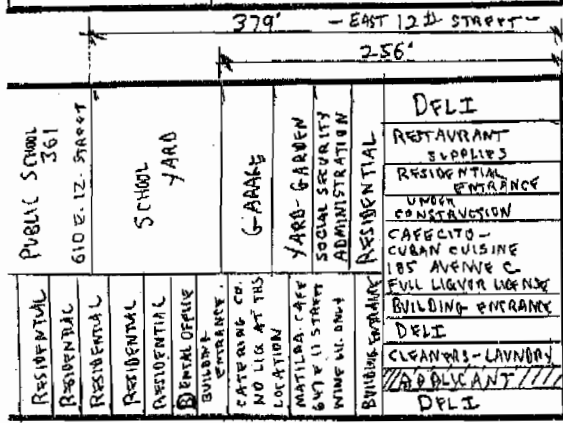 379' - EAST 12th STREET -
256'
PUBLIC SCHOOL
361
610 E. 12. STREET
SCHOOL
YARD
GARAGE
YARD-GARDEN
SOCIAL SECURITY
ADMINISTRATION
RESIDENTIAL
DELI
RESTAURANT
SUPPLIES
RESIDENTIAL
ENTRANCE
UNDER
CONSTRUCTION
CAFECITO -
CUBAN CUISINE
185 AVENUE C
FULL LIQUOR LICENSE
BUILDING ENTRANCE
DELI
CLEANERS-LAUNDRY
APPLICANT
DELI
RESIDENTIAL
RESIDENTIAL
RESIDENTIAL
RESIDENTIAL
RESIDENTIAL
DENTAL OFFICE
BUILDING
ENTRANCE.
CATERING CO.
NO LIC AT THS
LOCATION
MATILDA. CAFE
647 E 11 STREET
WINE LIC. ONLY
BUILDING ENTRANCE